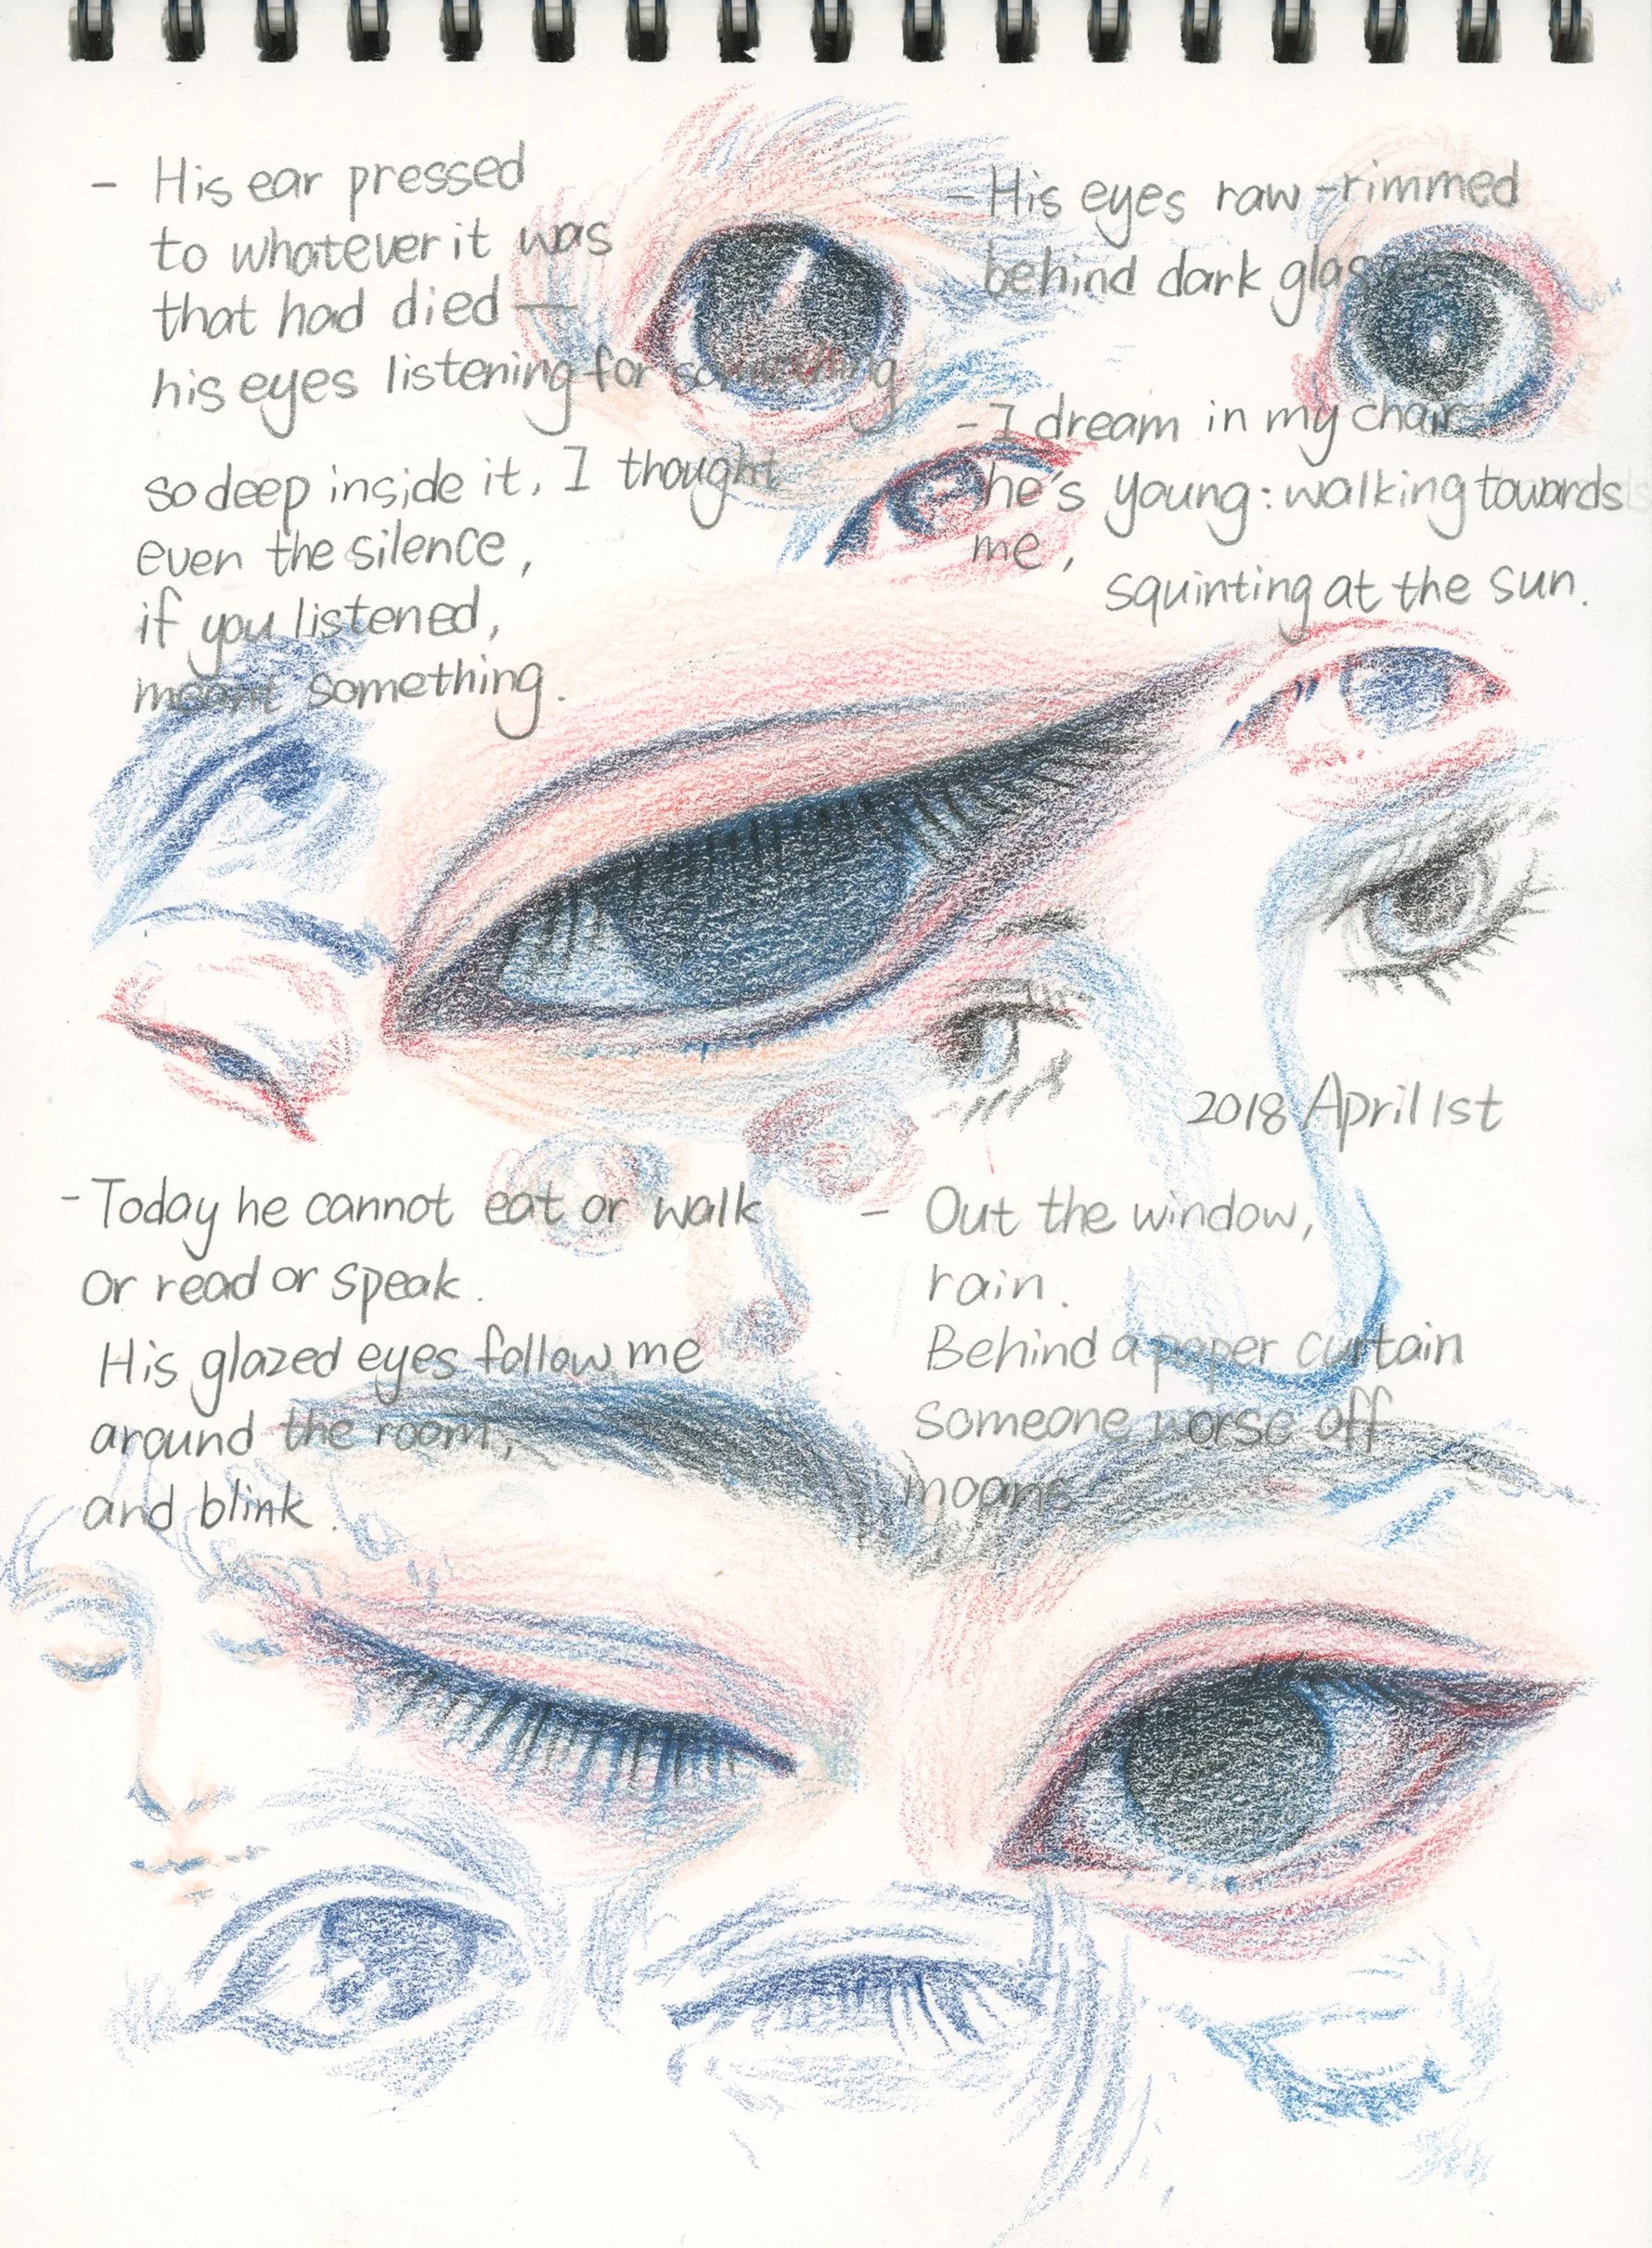 - His ear pressed
to whatever it was
that had died —
his eyes listening for something
so deep inside it, I thought
even the silence,
if you listened,
meant something.
- His eyes raw-rimmed
behind dark glasses
- I dream in my chair
he's young: walking towards
me,
squinting at the sun.
2018 April 1st
- Today he cannot eat or walk
or read or speak.
His glazed eyes follow me
around the room,
and blink.
- Out the window,
rain.
Behind a paper curtain
someone worse off
moans